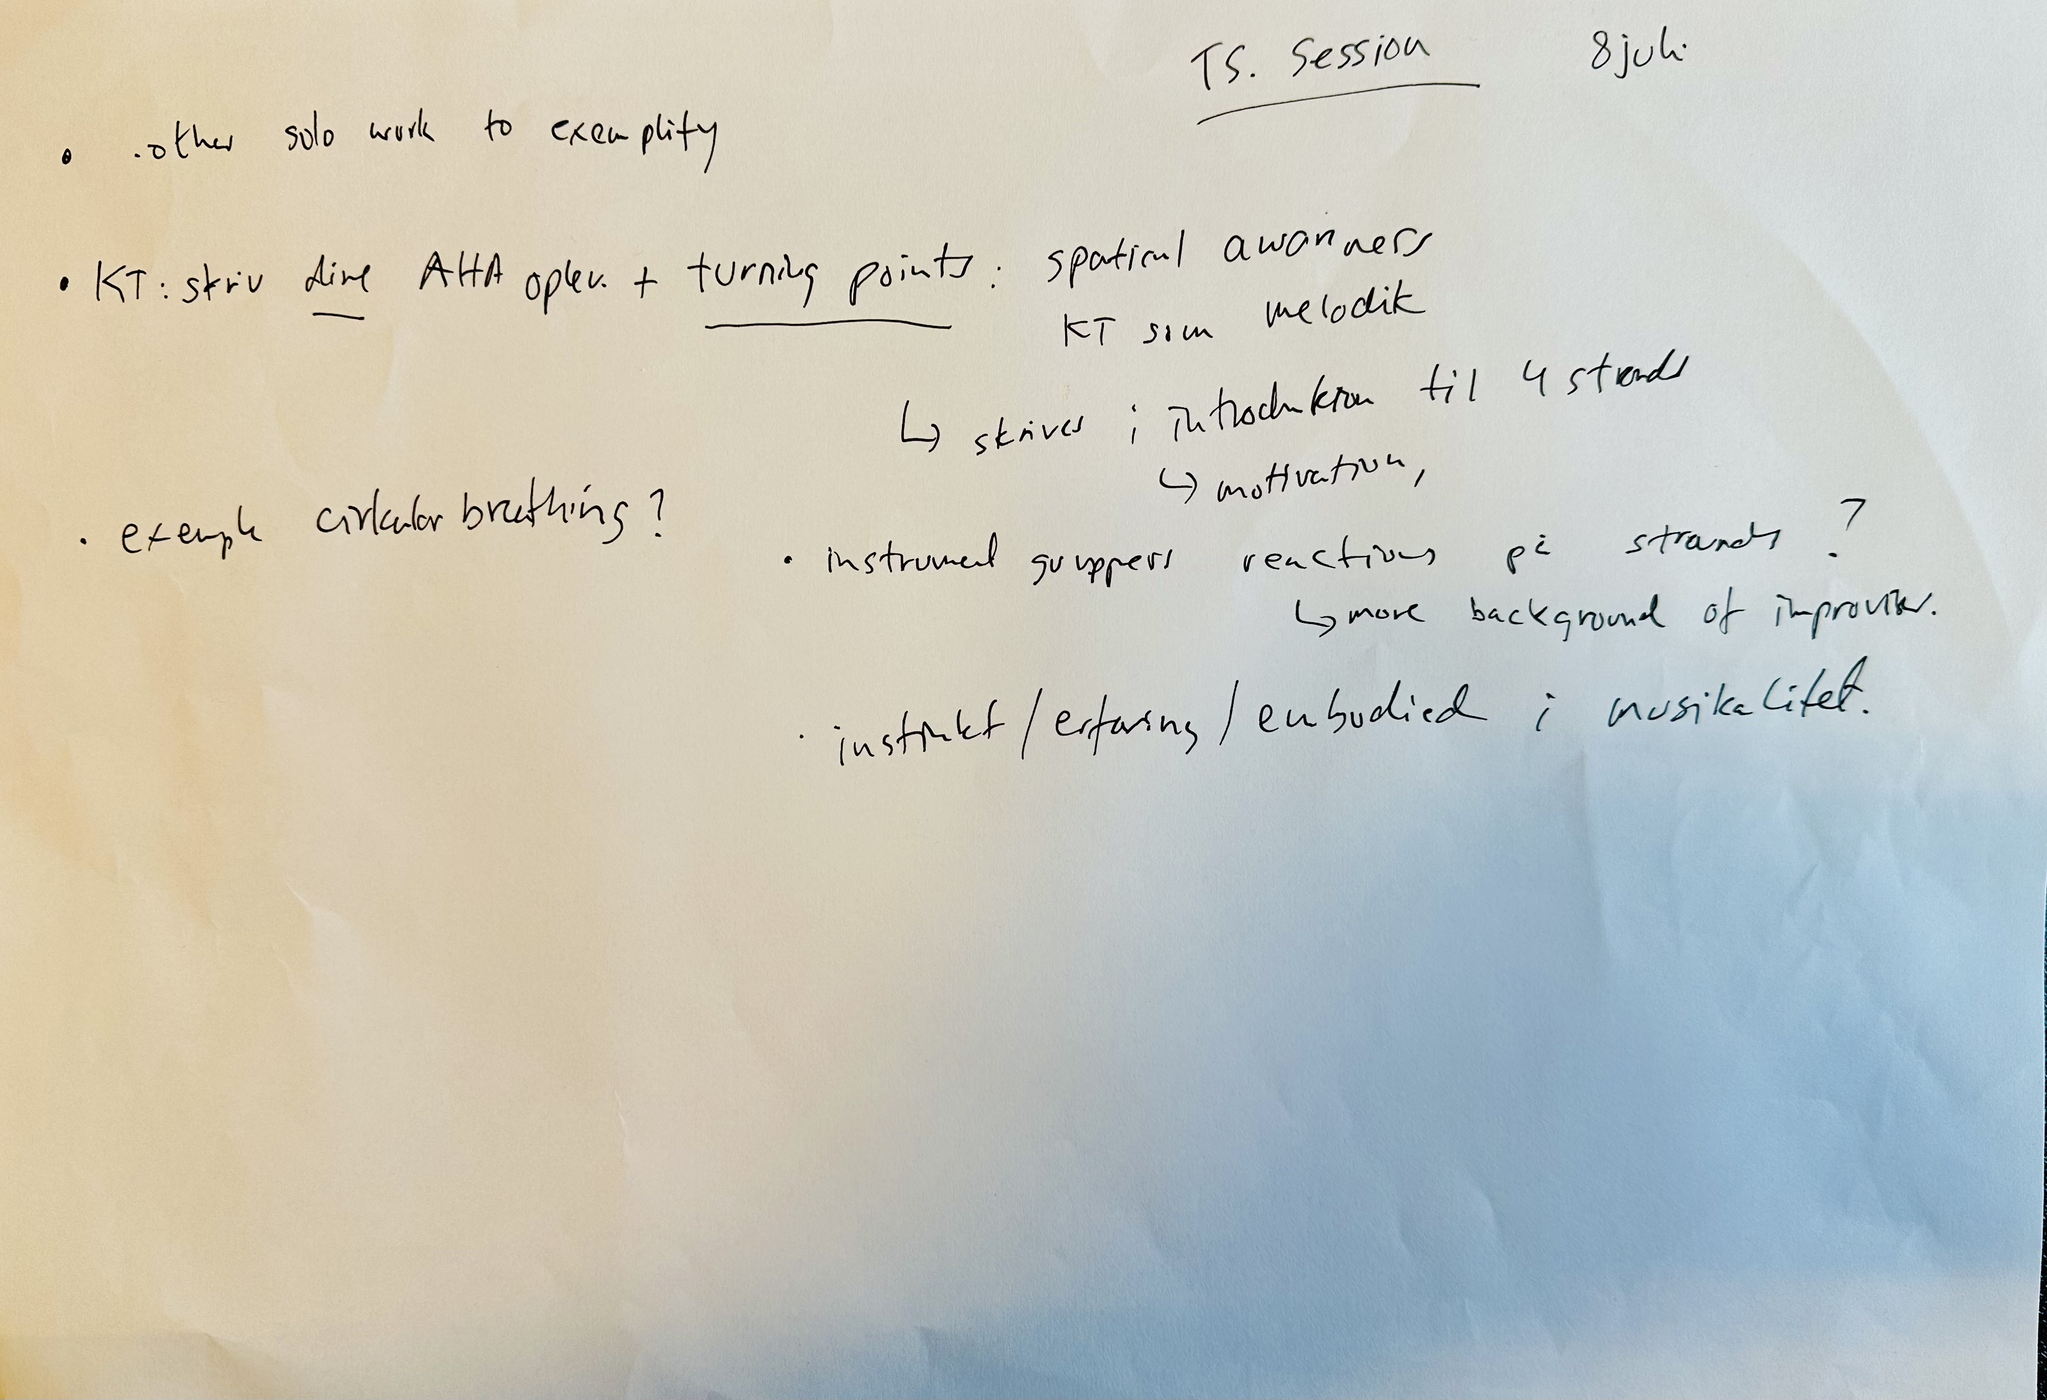 TS. Session 8 juli
• .other solo work to exemplify
• KT: skriv dine AHA oplev. + turning points: spatical awarnness
KT som melodik
↳ skrives i introduktion til 4 strands
↳ motivation,
• exemple cirkular breathing?
• instrument gruppers reactions på strands?
↳ more background of improviser.
· instinkt / erfaring / embodied i musikalitet.